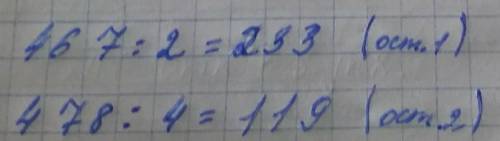 467:2=233 (ост.1)
478:4=119 (ост.2)